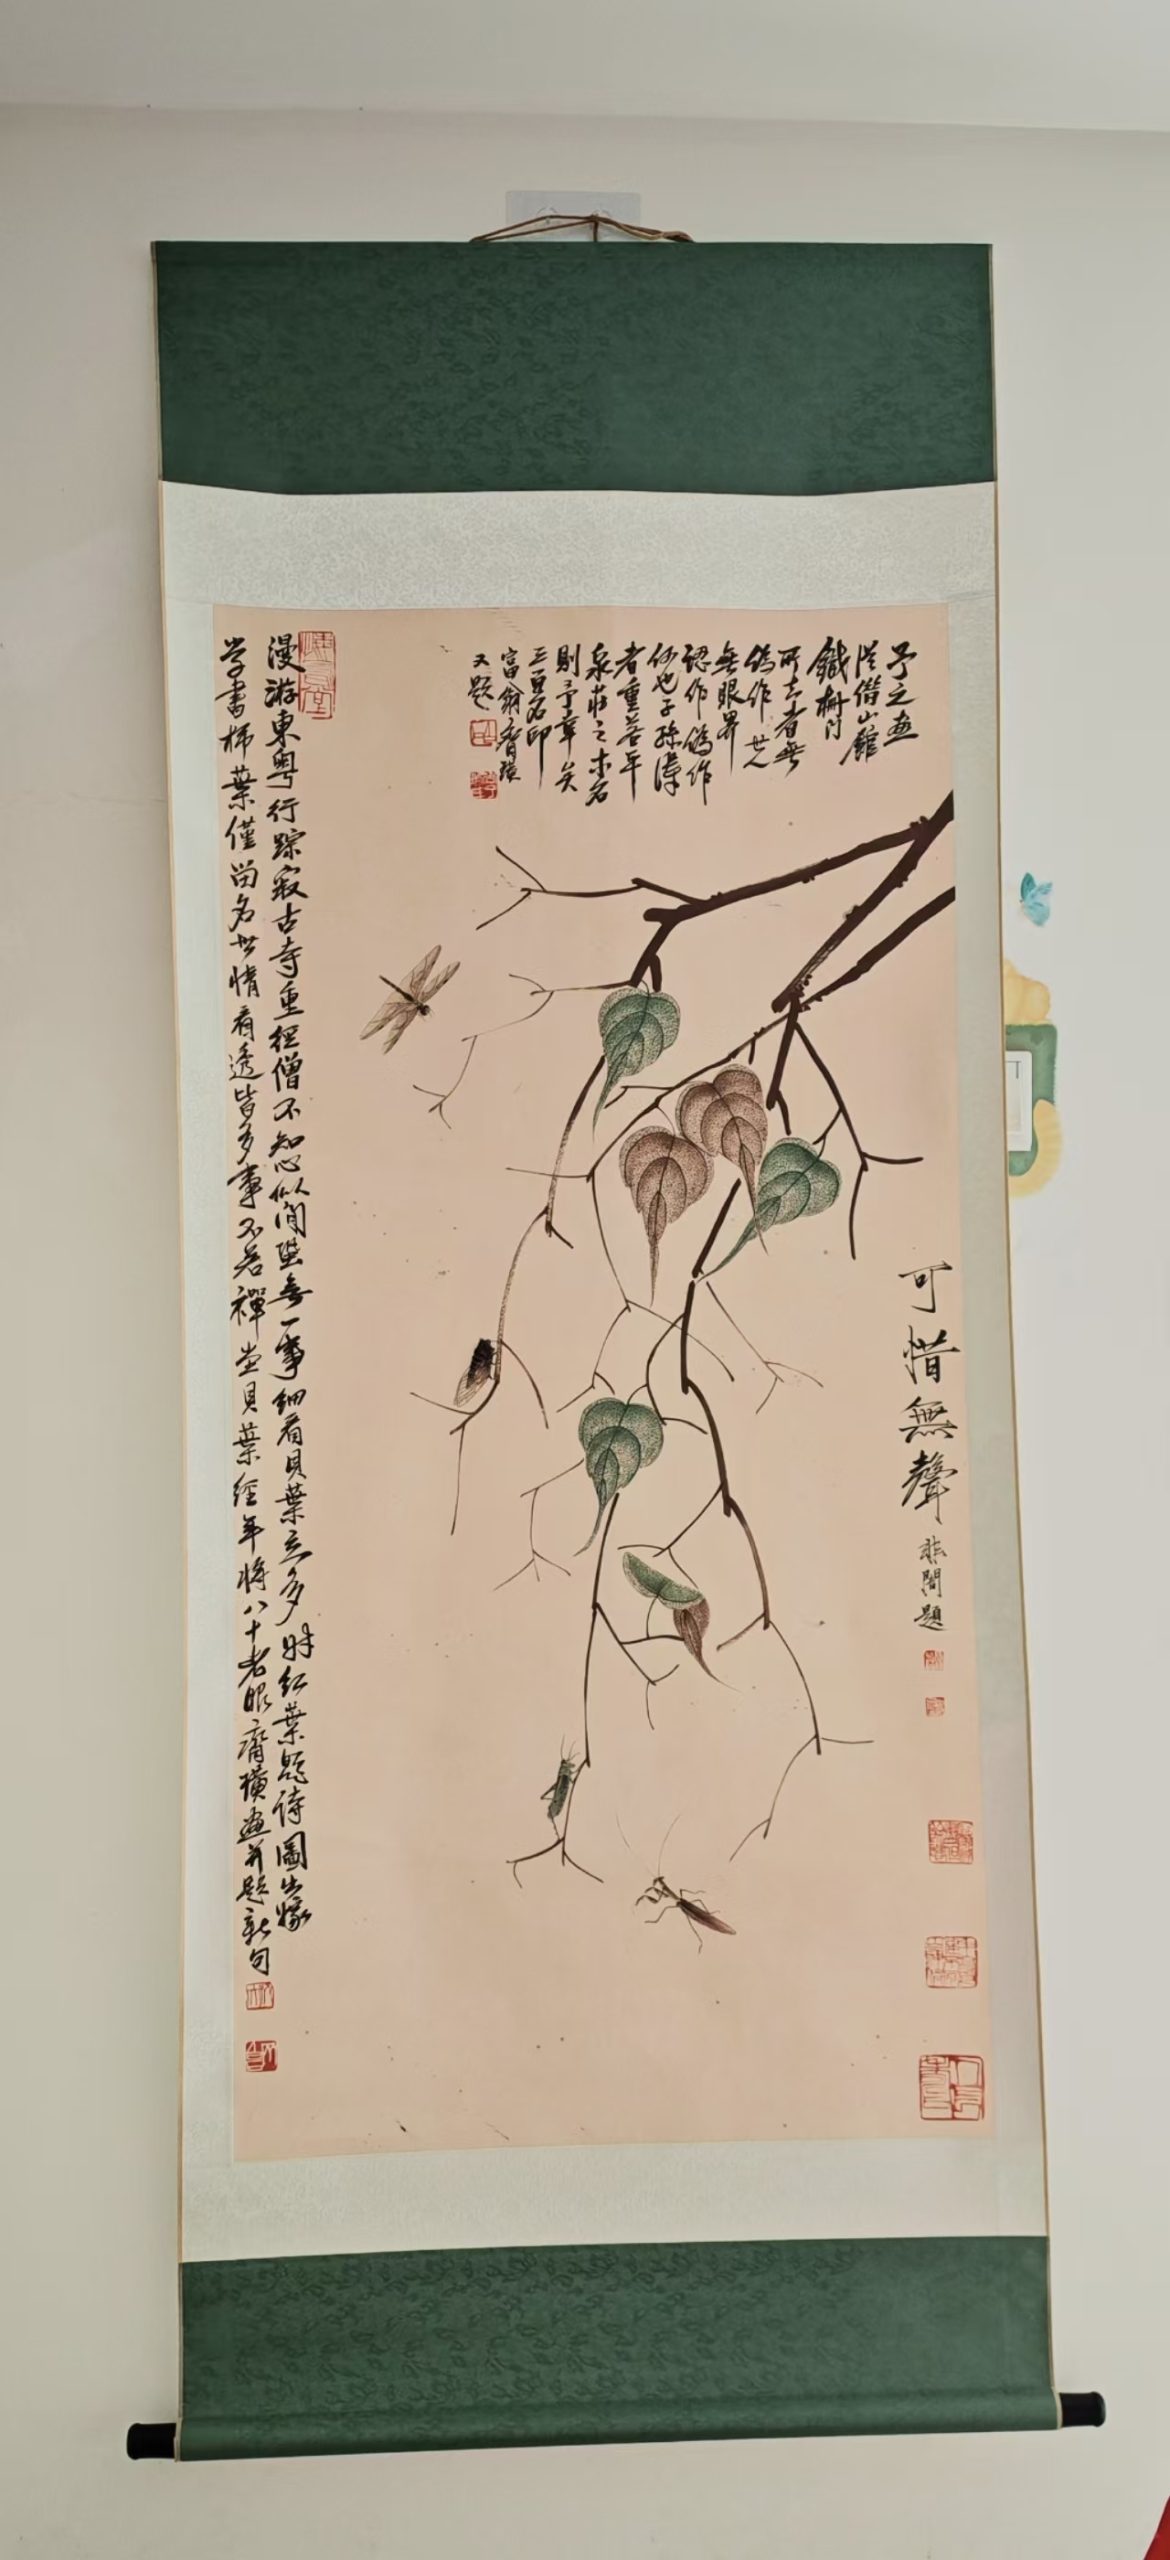 予之畫
從借山館
鐵柵門
所去者無
偽作世人
無眼界
認作偽作
何也子孫得
者重若平
泉莊之木石
則予幸矣
三百石印
富翁齊璜
又題
可惜無聲
非闇題
漫游東粵行踪寂古寺重徑僧不知心似閒蛩無一事細看貝葉立多時紅葉題詩圖出嫁
學書柿葉僅留名世情看透皆多事不若禪堂貝葉經年將八十老眼齊璜畫並題新句